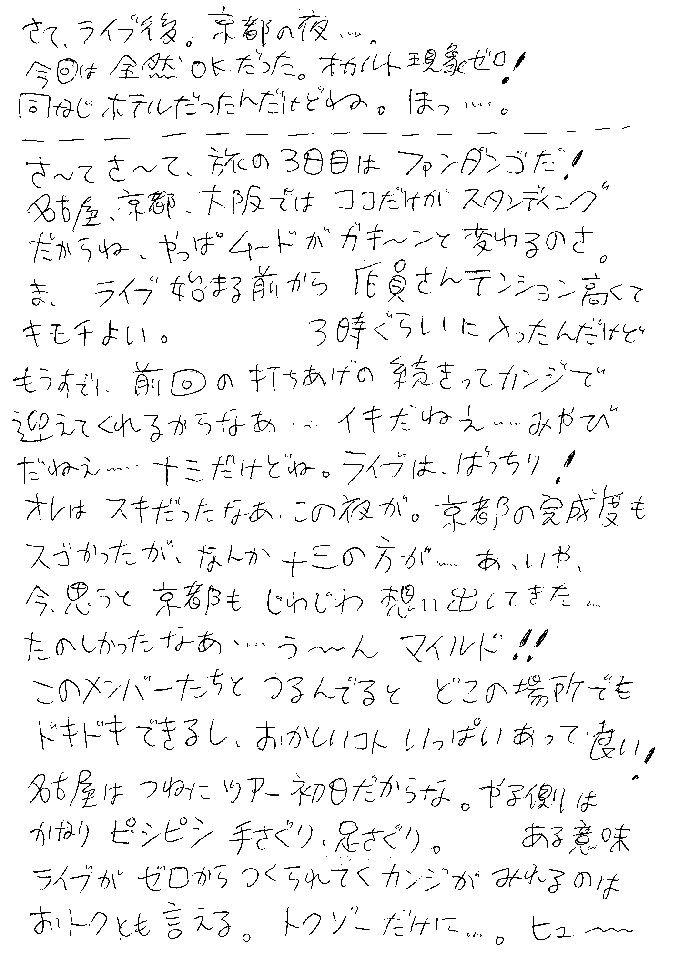 さて、ライブ後。京都の夜…。
今回は全然OKだった。オカルト現象ゼロ!
同なじホテルだったんだけどね。ほっ…。
さ〜てさ〜て、旅の3日目はファンダンゴだ!
名古屋、京都、大阪ではココだけがスタンディング
だからね、やっぱムードがガキ〜ンと変わるのさ。
ま、ライブ始まる前から店員さんテンション高くて
キモチよい。 3時ぐらいに入ったんだけど
もうすでに、前回の打ちあげの続きってカンジで
迎えてくれるからなあ…イキだねえ…みやび
だねえ…十三だけどね。ライブは、ばっちり!
オレはスキだったなあ、この夜が。京都の完成度も
スゴかったが、なんか十三の方が…あ、いや、
今、思うと京都もじわじわ想い出してきた…
たのしかったなあ…う〜ん マイルド!!
このメンバーたちとつるんでるとどこの場所でも
ドキドキできるし、おかしいコトいっぱいあって良い!
名古屋はつねにツアー初日だからな。やる側は
かなりピシピシ手さぐり、足さぐり。 ある意味
ライブがゼロからつくられてくカンジがみれるのは
おトクとも言える。トクゾーだけに…。ヒュ〜〜